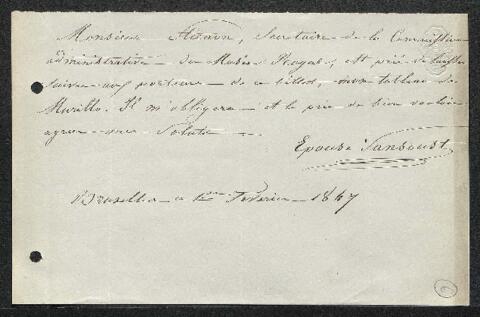 Monsieur , Secrétaire de la Commission
administrative du Musée Royal, est prié de laisser
suivre au porteur de ce billet, mon tableau de
Murillo. Il m'obligera et le prie de bien vouloir
agréer mes Saluts
Epouse Vansoust
Bruxelles le 1er Février 1847